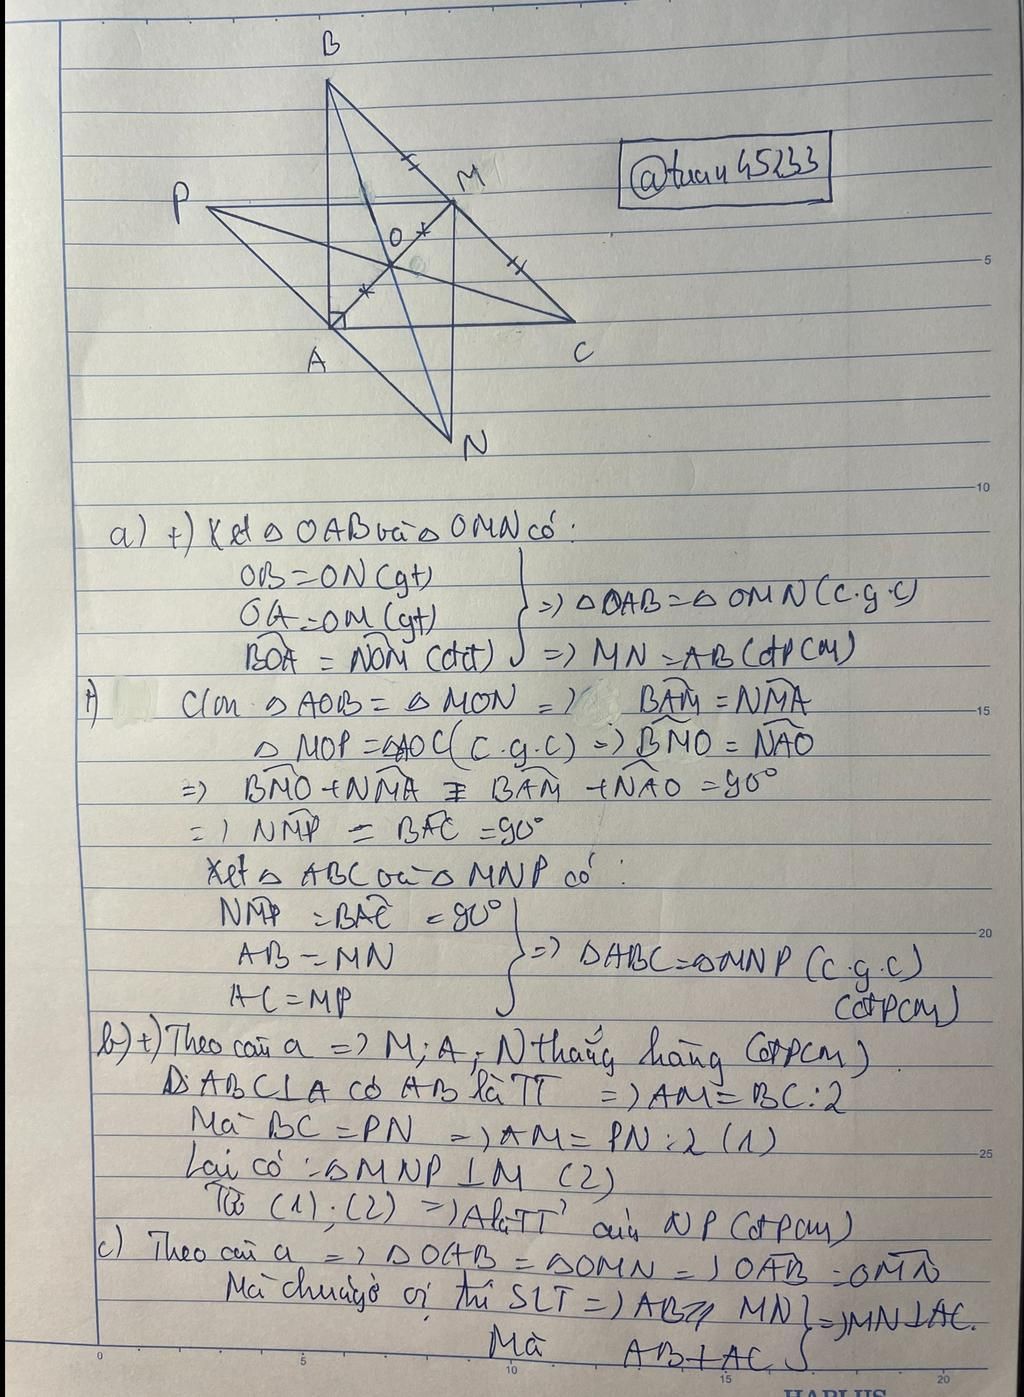 B
@tuan45233
P
M
O
5
A
C
N
10
a) +) Xét △ OAB và △ OMN có:
OB = ON (gt)
OA = OM (gt) => △OAB = △ OMN (c.g.c)
BOA = NOM (đđ) => MN = AB (đPCM)
+) C/m △ AOB = △ MON => BAM = NMA
15
△ MOP = △AOC (c.g.c) => BMO = NAO
=> BMO + NMA = BAM + NAO = 90°
=> NMP = BAC = 90°
Xét △ ABC và △ MNP có:
NMP = BAC = 90°
20
AB = MN => △ABC = △MNP (c.g.c)
AC = MP (đPCM)
b) +) Theo câu a => M; A; N thẳng hàng (đPCM)
△ ABC ⊥ A có AB là TT => AM = BC : 2
Mà BC = PN => AM = PN : 2 (1)
25
Lại có : △ MNP ⊥ M (2)
Từ (1); (2) => A là TT' của NP (đPCM)
c) Theo câu a => △ OAB = △OMN => OAB = OMN
Mà chúng ở vị trí SLT => AB // MN => MN ⊥ AC.
Mà AB ⊥ AC
0 5 10 15 20
HAPLUS